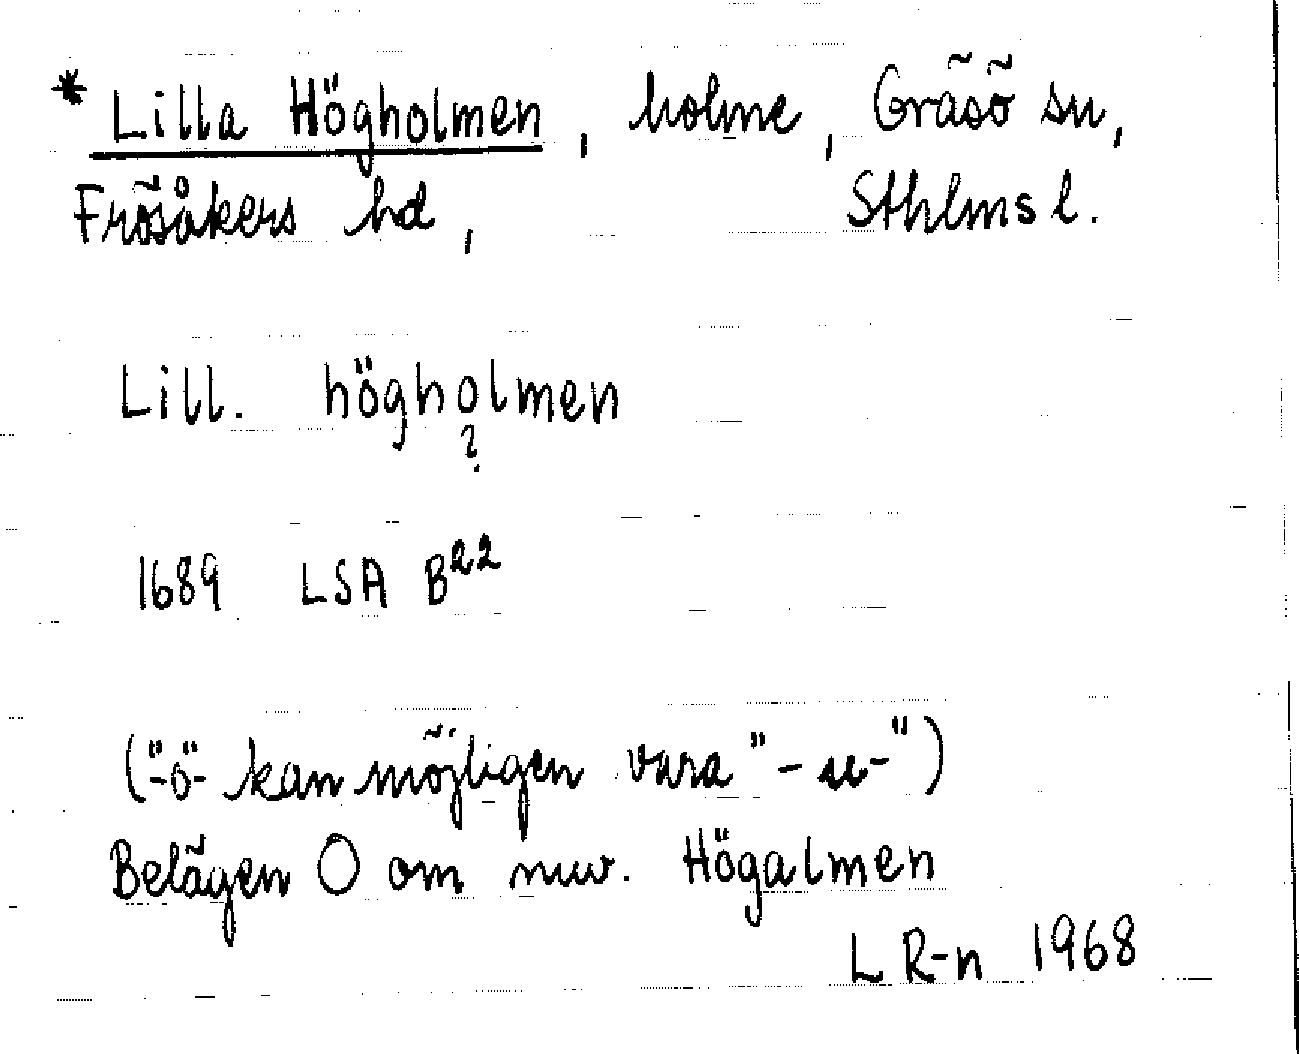 * Lilla Högholmen, holme, Gräsö sn,
Frösåkers hd, Sthlms l.
Lill. högholmen
?
1689 LSA B22
("-o-" kan möjligen vara "-u-")
Belägen O om nuv. Högalmen
L R-n 1968